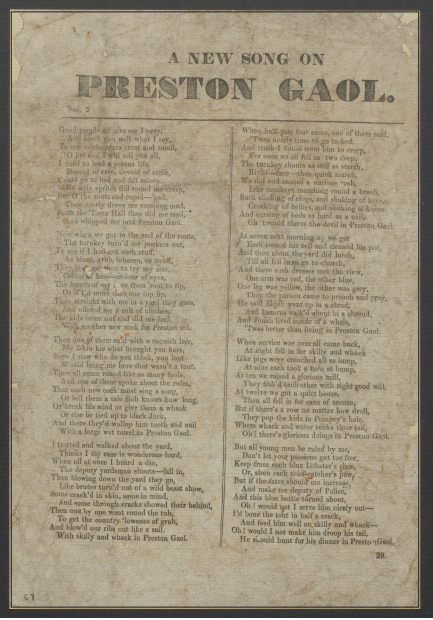 A NEW SONG ON
PRESTON GAOL.
Sec. 2
Good people all give ear I pray,
And mark you well what I say,
To my misfortunes great and small,
O list and I will tell you all,
I used to lead a joyous life
Devoid of care, devoid of strife,
Could go to bed and fall asleep
No ugly sprites did round me creep,
and cupid—
Then nearly drove me roaming mad,
From the Town Hall they did me trail,
And whipped me into Preston Gaol.
Now when we got to the end of the route,
The turkey turn'd my pockets out,
To see if I had got such stuff,
As bacon, grub, tobacco, or snuff,
They me then to try my size,
Colour of hair—colour of eyes,
The length of my from root to tip,
Or if I'd more than one top lip,
Then straight with me to a room they goes,
And offered me a suit of clothes,
The kids came out and did me hail
With another new cock for Preston gaol.
Then one of them sa'd with a roguish leer,
My skin kie what brought you here,
Sure I now who do you think, you lout
Would bring me here that wasn't a tout.
And one of them spoke about the rules,
That each new cock must sing a song,
Or tell them a tale Bob knows how long,
Or break his wind or give them a whack
Or else be tied up to black Jack,
And there they'd wallop him tooth and nail
With a large wet towel in Preston Gaol.
I trotted and walked about the yard,
Thinks I my case is wonderous hard,
When all at once I heard a din,
The deputy yardsman shouts—fall in,
Then blowing down the yard they go,
Like brutes turn'd out of a wild beast show,
Some crack'd in skin, some in mind,
And some through cracks showed their behind,
Then one by one went round the tub,
To get the country 'lowance of grub,
And blow'd our ribs out like a sail.
With skilly and whack in Preston Gaol.
When half-past four came, one of them said,
'Twas nearly time to go to bed.
And truth I found from him to creep,
For soon we all fell in two deep,
The turnkey shouts as stiff as starch,
Right—face—then quick march,
We did and caused a curious rush,
Like monkeys marching round a brush,
Such clinking of clogs, and shaking of keys,
Creaking of bolts, and shaking of knees
And cursing of beds as hard as a nail,
Oh 'twould starve the devil in Preston Gaol.
At seven next morning up we got
Each stoned his cell and cleaned his pot,
And then about the yard did lurch,
Till all fell in to go to church,
And there such dresses met the view,
One arm was red, the other blue,
One leg was yellow, the other was grey,
Then the parson came to preach and pray,
He said Elijah went up in a cloud,
And Lazarus walk'd about in a shroud,
And Jonah lived inside of a whale,
'Twas better than living in Preston Gaol.
When service was over all came back,
At eight fell in for skilly and whack
Like pigs were crouched all as lump,
At nine each took a turn at bump,
At ten we mixed a glorious mill,
They fibb'd each other with right good will
At twelve we got a quiet house,
Then all fell in for cans of souse,
But if there's a row no matter how droll,
They pop the kids in Pompey's hole,
Where whack and water rocks their tail,
Oh! there's glorious doings in Preston Gaol.
But all young men be ruled by me,
Don't let your passions get too free,
Keep from each blue Lobster's claw,
Or, shun each thief-catcher's jaw,
But if the fates should me increase,
And make me deputy of Police,
And this blue bottle turned about,
Oh! would not I serve him nicely out—
I'd bone the tout in half a crack,
And feed him well on skilly and whack—
Oh! would I not make him droop his tail,
He should hunt for his dinner in Preston Gaol.
29.